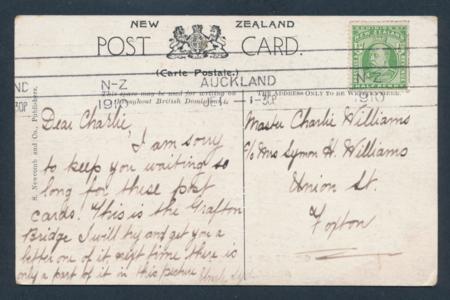 NEW ZEALAND
POST CARD.
(Carte Postale.)
AUCKLAND
N-Z
1910
N-Z
1910
This space may be used for writing on
throughout British Dominions
THE ADDRESS ONLY TO BE WRITTEN HERE.
S. Newcomb and Co., Publishers.
Dear Charlie
I am sorry
to keep you waiting so
long for these post
cards. This is the Grafton
Bridge I will try and get you a
better one of it next time there is
only a part of it in this picture
Master Charlie Williams
C/o Mrs Symon H. Williams
Union St.
Foxton